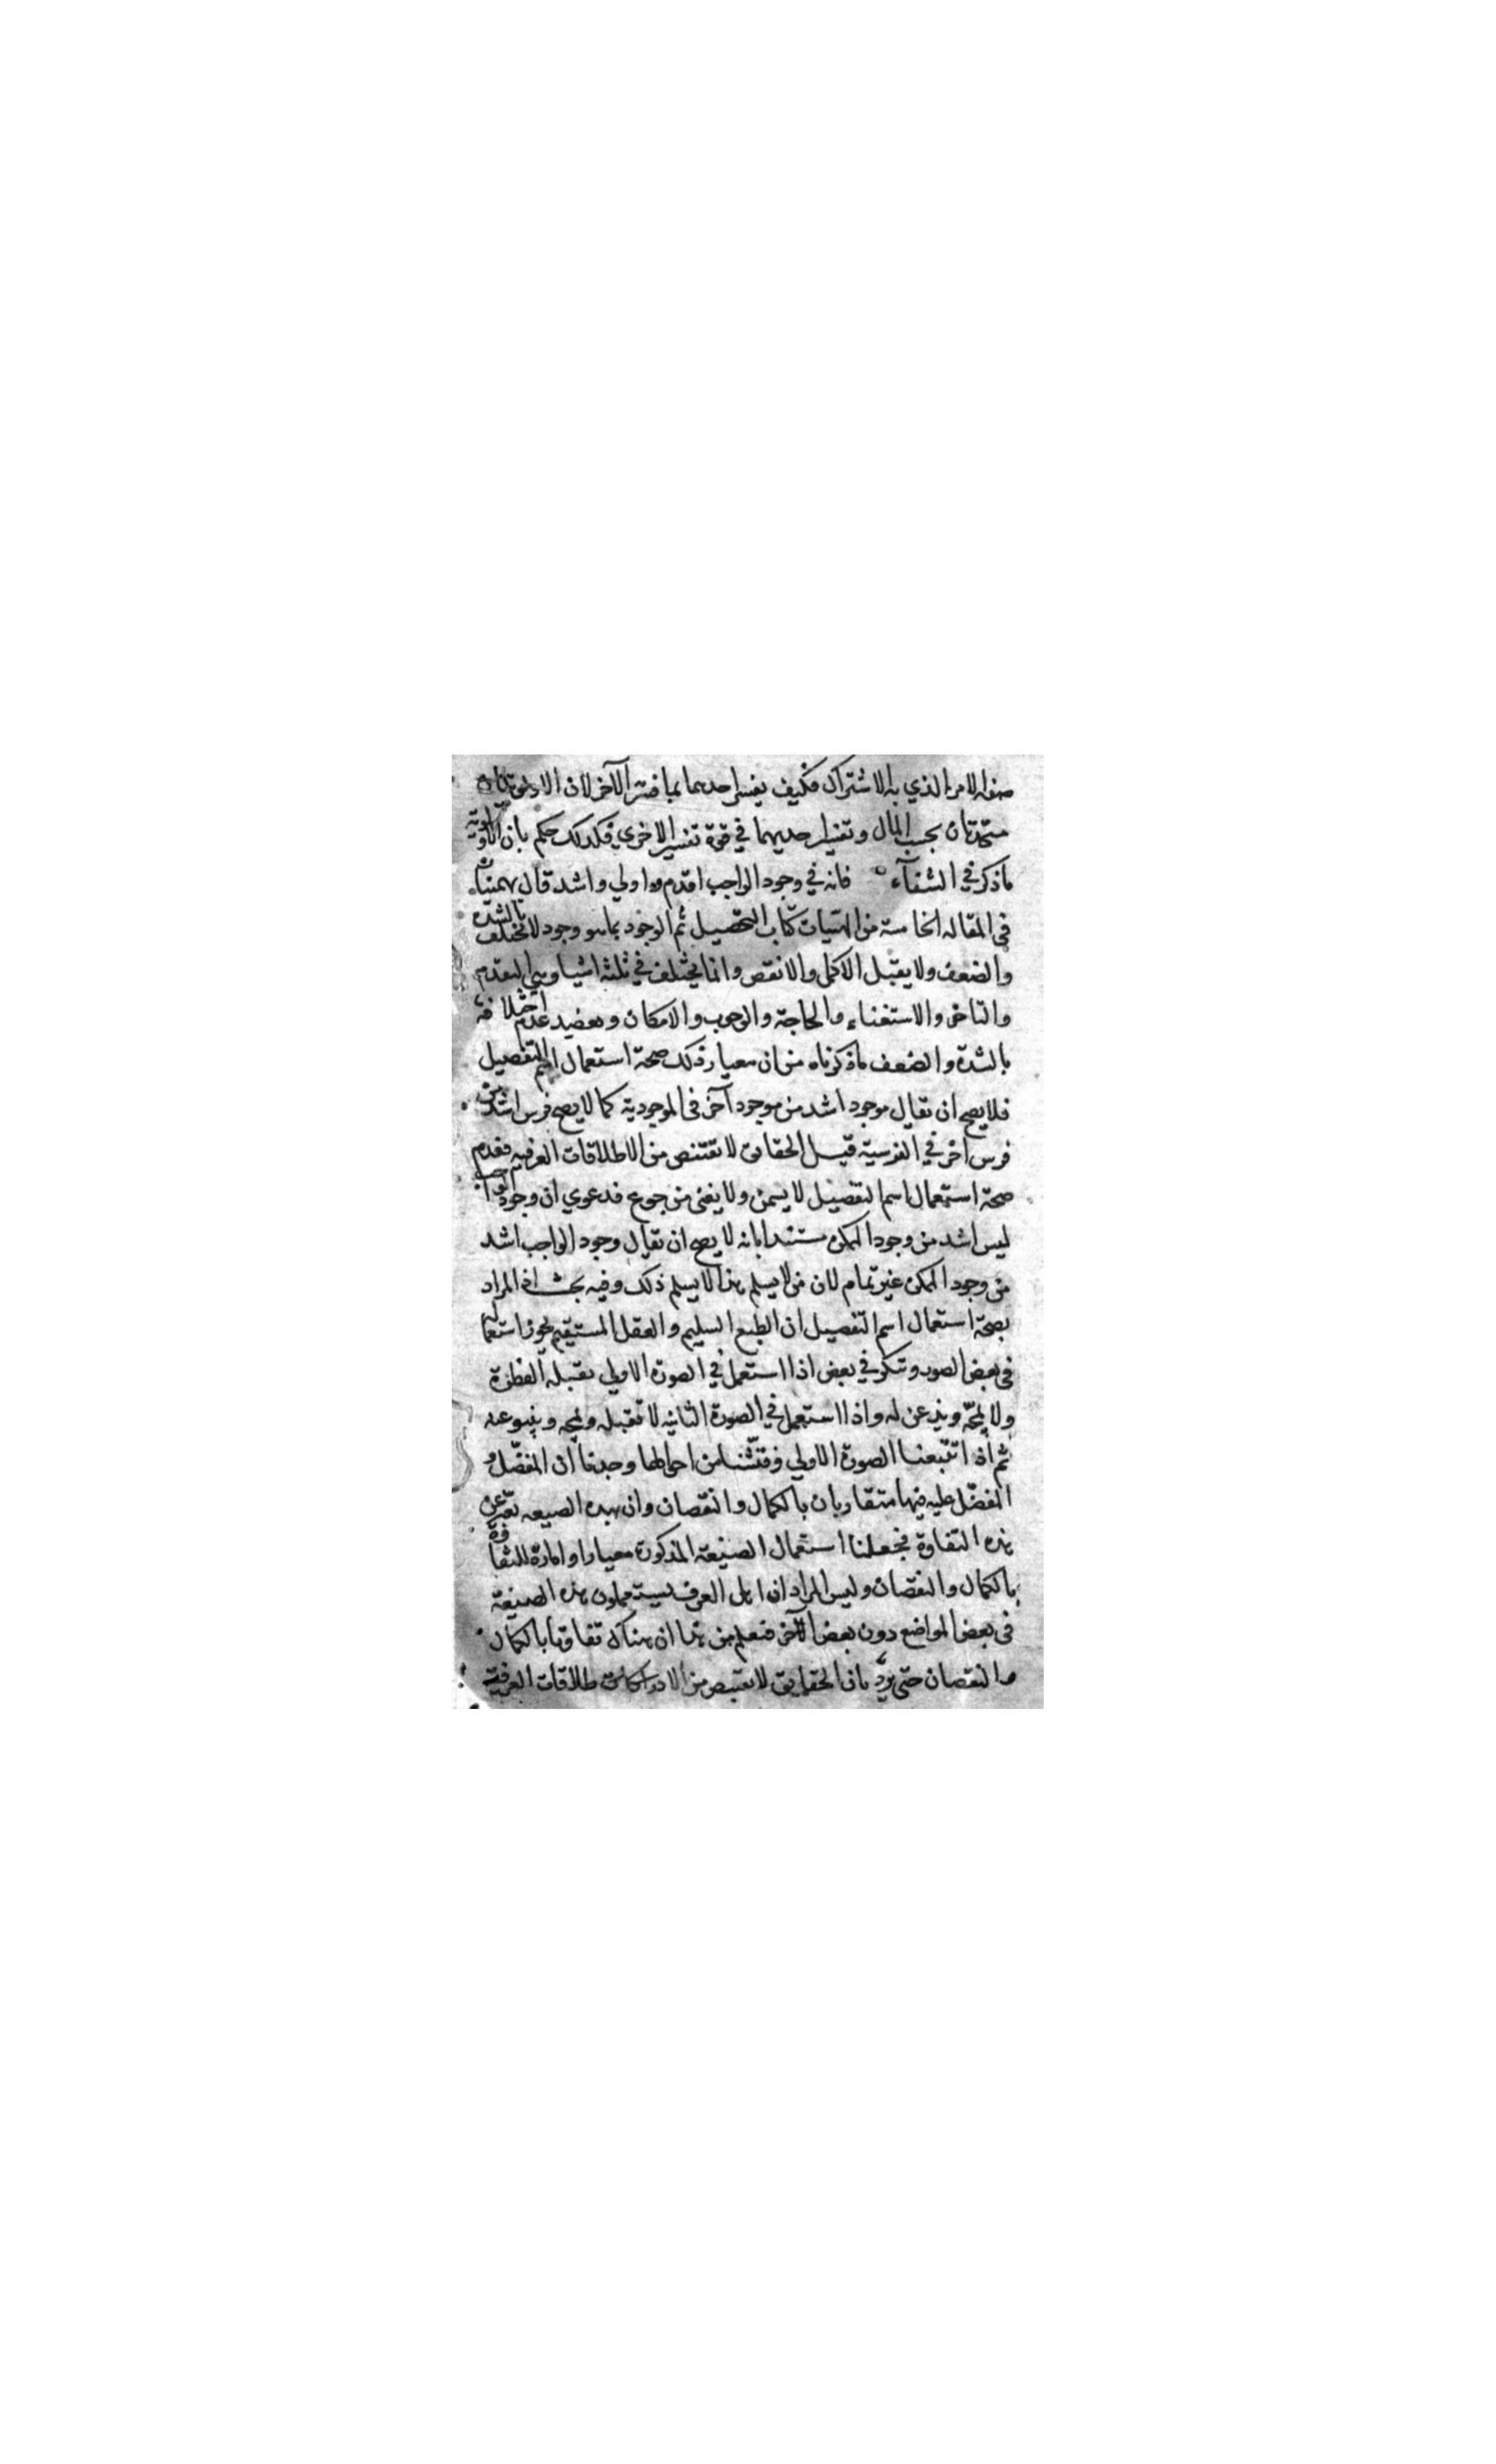 صفة الامر الذي به الاشتراك فكيف يفسر احدهما بما فسر الآخر لان الاولويتان
متحدتان بحسب المال وتفسير احديهما في قوة تفسير الاخرى فكذلك حكم بان الاولوية
ما ذكر في الشفآء فانه في وجود الواجب اقدم واولي واشد قال بهمنيار
في المقاله الخامسة من الهيات كتاب التحصيل ثم الوجود بما هو وجود لا يختلف بالشدة
والضعف ولا يقبل الاكمل والانقص وانما يختلف في ثلثة اشيا وهي التقدم
والتاخر والاستغناء والحاجة والوجوب والامكان ويعضيد عدم اختلافه
بالشدة والضعف ما ذكرناه من ان معيار ذلك صحة استعمال اسم التفصيل
فلا يصح ان يقال موجود اشد من موجود آخر في الموجودية كما لا يصح فرس اشد من
فرس اخر في الفرسية قيل الحقائق لا تقتنص من الاطلاقات العرفيه فعدم
صحة استعمال اسم التفضيل لا يسمن ولا يغنى من جوع فدعوي ان وجود الواجب
ليس اشد من وجود الممكن مستندا بانه لا يصح ان يقال وجود الواجب اشد
من وجود الممكن غير تمام لان من لا يسلم هذا لا يسلم ذلك وفيه بحث اذ المراد
بصحة استعمال اسم التفصيل ان الطبع السليم والعقل المستقيم يجوز استعماله
في بعض الصور وتنكر في بعض اذا استعمل في الصورة الاولي تقبله الفطرة
ولا يمجّه ويذعن له واذا استعمل في الصورة الثانيه لا تقبله ويمجه وينبو عنه
ثم اذا تتبعنا الصورة الاولي وفتّشنا من احوالها وجدنا ان المفضّل و
المفضّل عليه فيها متقاربان بالكمال والنقصان وان بهذه الصيعه تعبر عن
هذه التفاوة فجعلنا استعمال الصيغة المذكورة معيارا وامارة للتفاوة
بالكمال والنقصان وليس المراد ان اهل العرف يستعملون هذه الصيغة
في بعض المواضع دون بعض الآخر فنعلم من هذا ان هناك تفاوتا بالكمال
والنقصان حتى يردّ بان الحقايق لا تقتنص من طلاقات العرفية